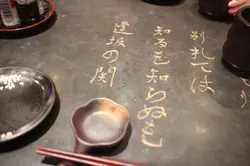 別れては
知るも知らぬも
逢坂の関